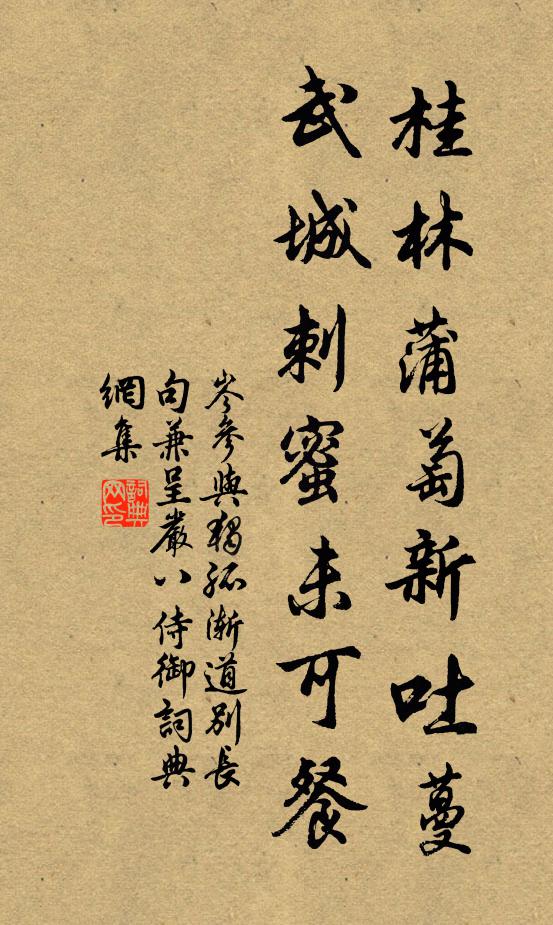 桂林蒲萄新吐蔓
武城刺蜜未可餐
岑參與獨孤漸道別長
句兼呈嚴八侍御詞典
網集
詞典
网印